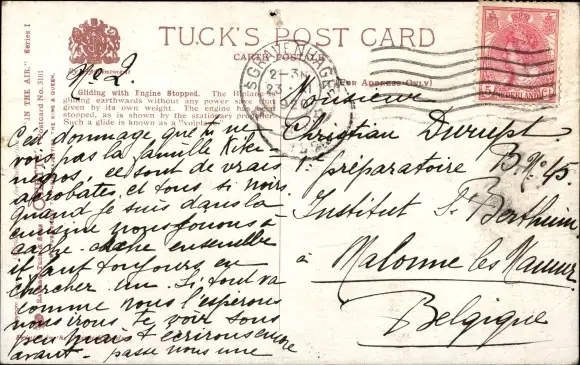 TUCK'S POST CARD
CARTE POSTALE
(FOR ADDRESS ONLY)
"IN THE AIR." Series I
Postcard No. 3101
No 2.
Gliding with Engine Stopped. The Biplane
gliding earthwards without any power save that
given by its own weight. The engine has
stopped, as is shown by the stationary propeller.
Such a glide is known as a "volplane"
'S GRAVENHAGE
NEDERLAND
C'est dommage que tu ne
vois pas la famille Kiki-
ce sont de vrais
acrobates, et tous si noirs.
Quand je suis dans la
cuisine nous jouons à
cache cache ensemble
il faut toujours en
chercher un. Si tout va
comme nous l'espérons
nous irons te voir sous
peu mais t'écrirons encore
avant. passe nous une
Monsieur
Christian Durupt.
préparatoire B. No 45.
Institut St Berthuin
à Malonne lez Namur
Belgique